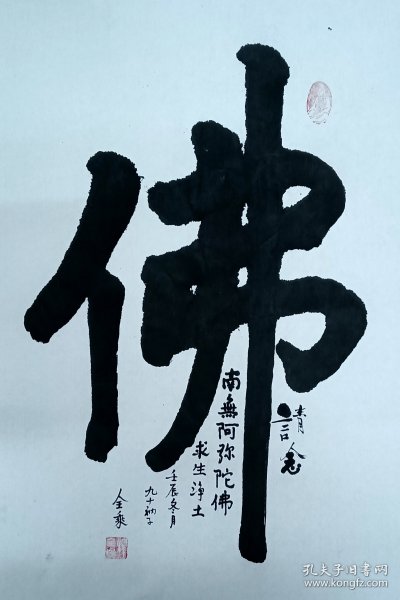 佛
請念
南無阿弥陀佛
求生淨土
壬辰冬月
九十衲子
全乘
孔夫子旧书网
www.kongfz.com